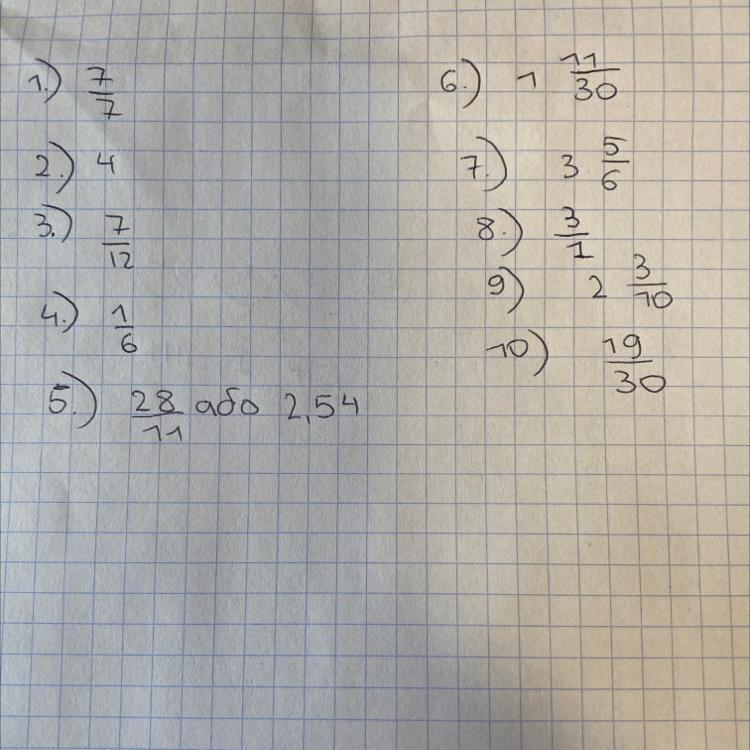 1.) 7/7
2.) 4
3.) 7/12
4.) 1/6
5.) 28/11 або 2,54
6.) 1 11/30
7.) 3 5/6
8.) 3/1
9) 2 3/10
10) 19/30